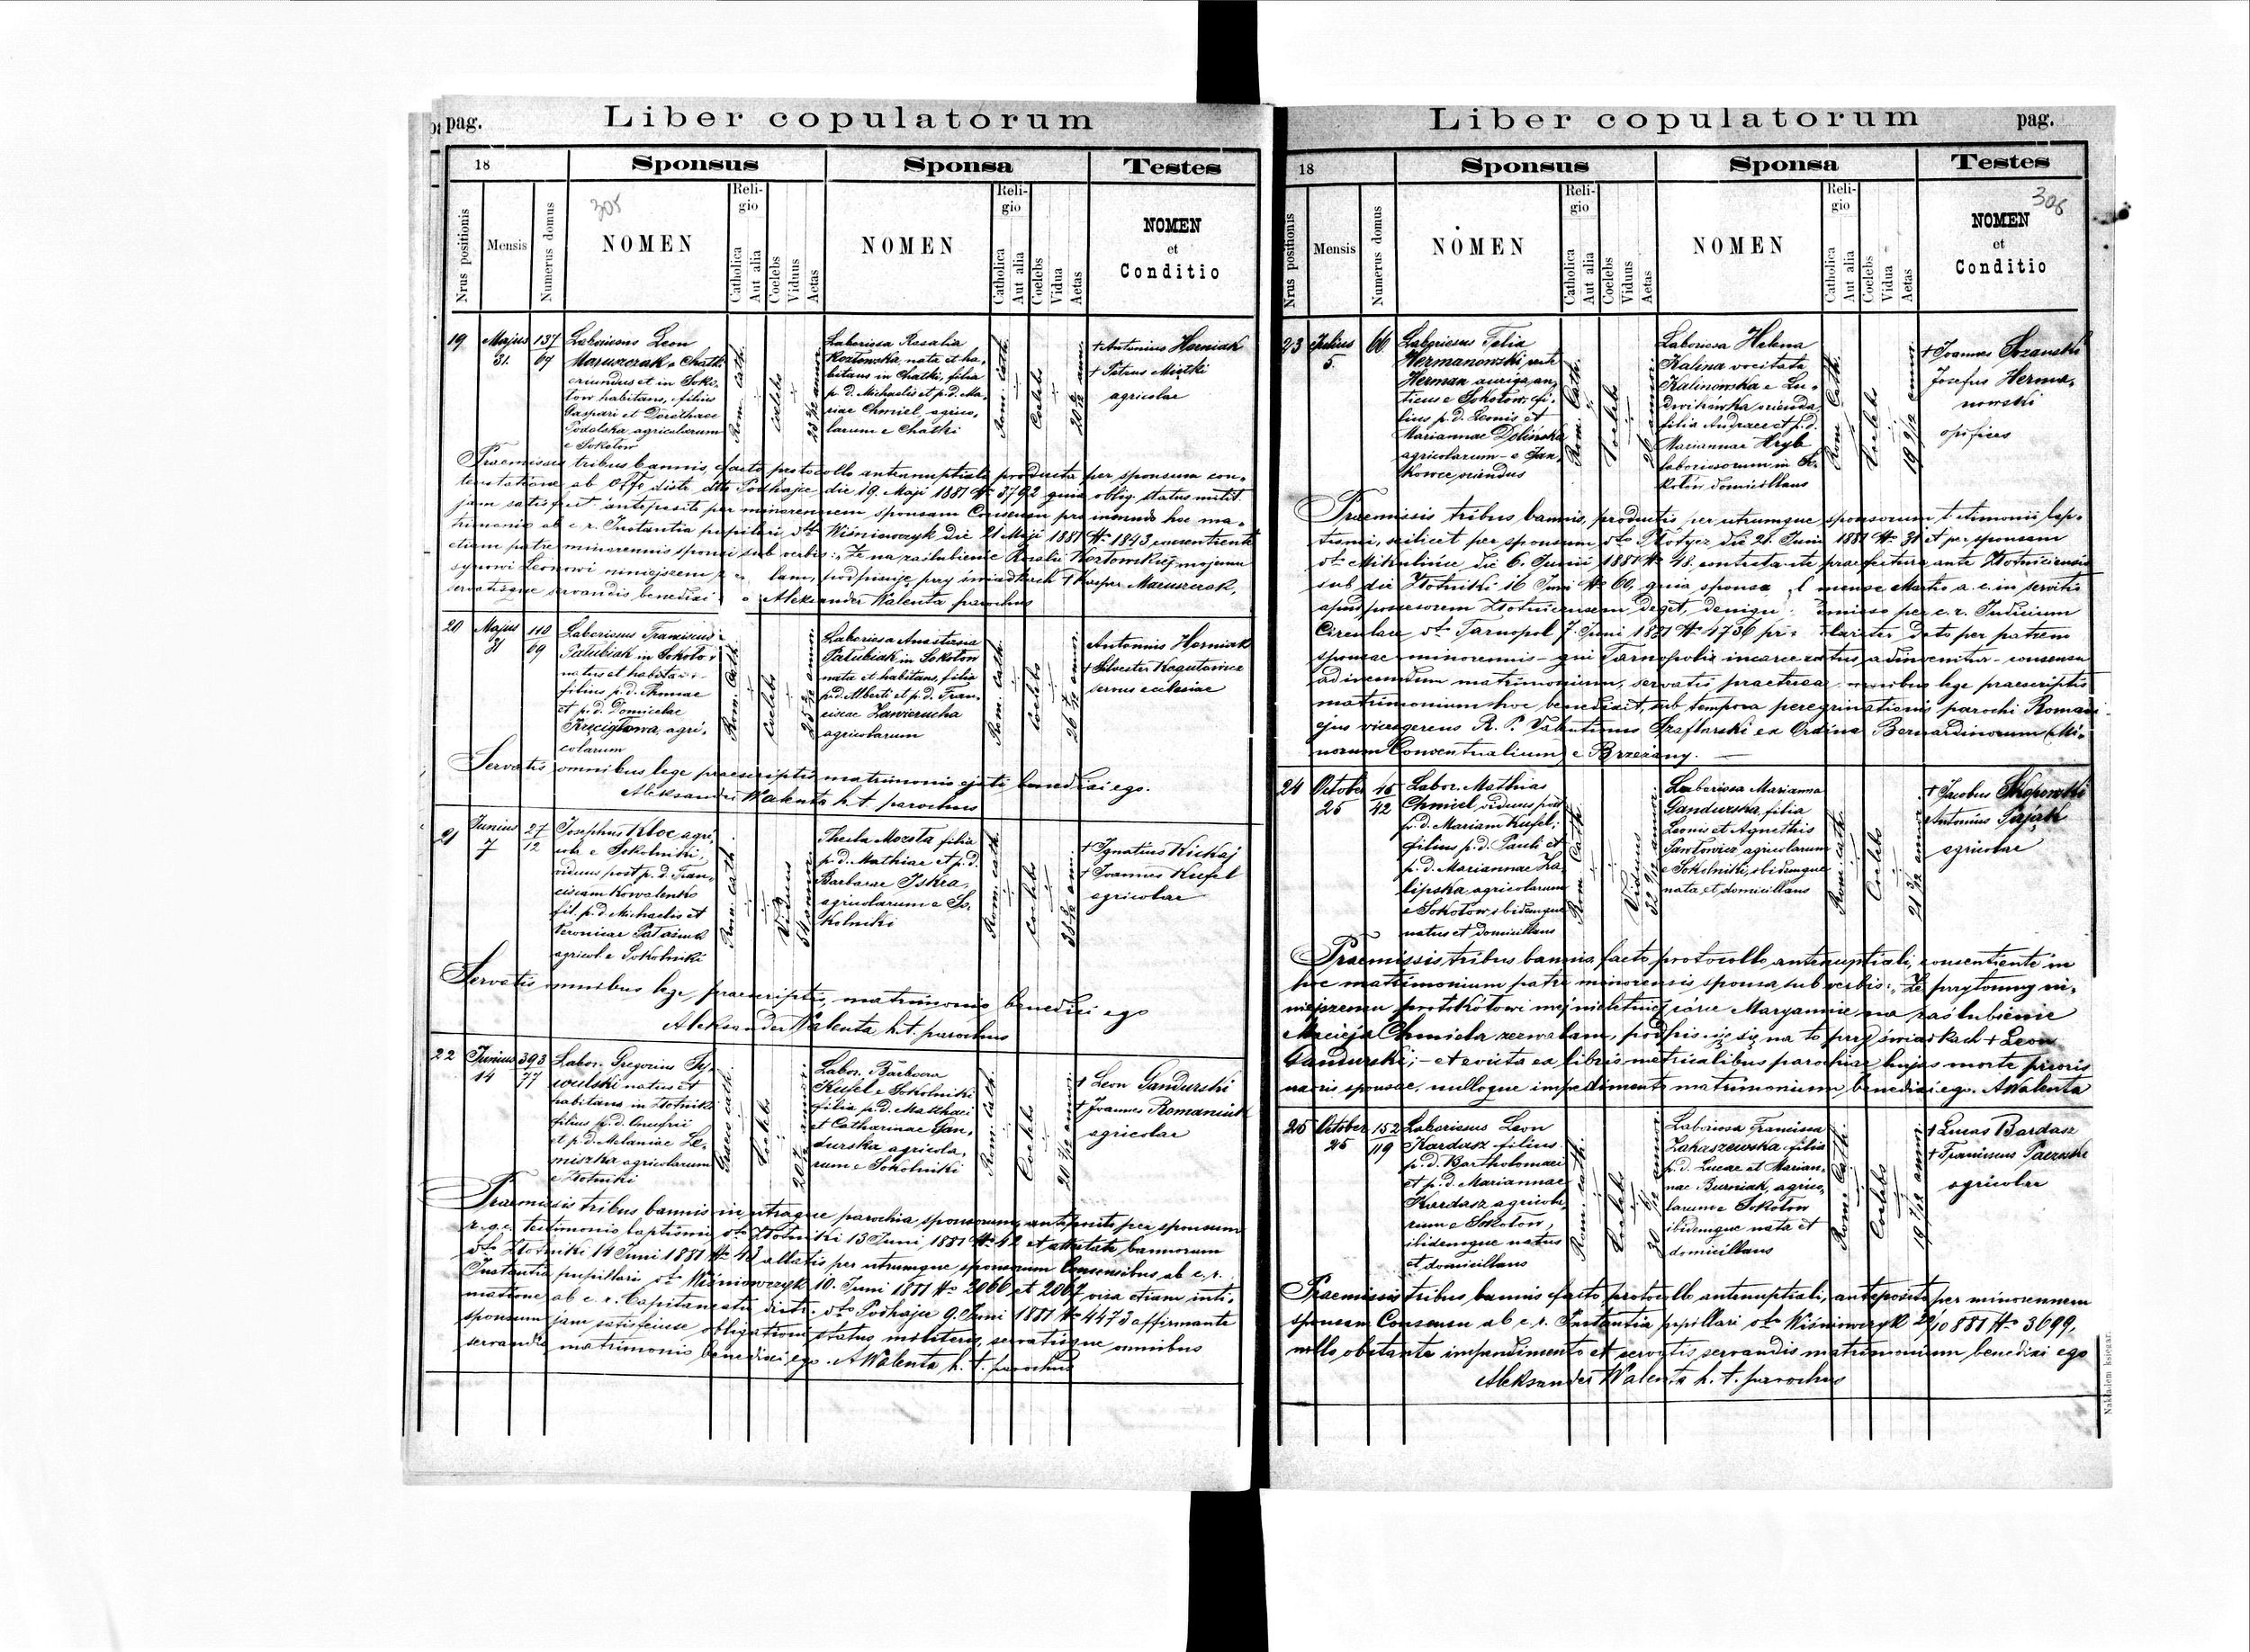 pag. Liber copulatorum
18 Sponsus Sponsa Testes
Nrus positionis Mensis Numerus domus NOMEN Religio Catholica Aut alia Coelebs Viduus Aetas NOMEN Religio Catholica Aut alia Coelebs Vidua Aetas NOMEN et Conditio
305
19 Majus 31. 137 67
Laboriosus Leon
Maruszczak e Chatki
oriundus et in Soko-
low habitans, filius
Gaspari et Dorotheae
Podolska agricolarum
e Sokolow
Rom. cath.
caelebs
Laboriosa Rosalia
Kozłowska nata et ha-
bitans in Chatki, filia
p. d. Michaelis et p. d. Ma-
riae Chmiel, agrico-
larum e Chatki
Rom. cath.
Coelebs
+ Antonius Horniak
+ Petrus Miętki
agricolae
Praemissis tribus bannis, facto protocollo antenuptiali producta per sponsum con-
testatione ab Offo distr. dtto Podhajce die 19. Maji 1881 No 3792 quia oblig. status milit.
jam satisfecit anteposito per minorennem sponsam Consensu pro ineundo hoc ma-
trimonio ab c. r. Instantia pupillari, dto Wiśniowczyk die 21 Maji 1881 No 1843 consentiente
etiam patre minorennis sponsi sub verbis: "Że na zaślubienie Rosalii Kozłowskiej mojemu
synowi Leonowi niniejszem lam, podpisuję przy świadkach + Kasper Maruszczak,
servatisque servandis benedixi Aleksander Walenta parochus
20 Majus 31 110 69
Laboriosus Franciscus
Patubiak in Sokolow
natus et habitans
filius p. d. Thomae
et p. d. Domicelae
agri-
colarum
Rom. Cath.
Coelebs
Laboriosa Anastasia
Patubiak in Sokolow
nata et habitans, filia
p. d. Alberti et p. d. Fran-
ciscae Zawierucha
agricolarum
Rom. Cath.
Coelebs
Antonius Horniak
+ Silvester Rogutowicz
servus ecclesiae
Servatis omnibus lege praescriptis matrimonio benedixi ego.
Aleksander Walenta h. t. parochus
21 Junius 7 27 12
Josephus Kloc agri-
cola e Sokolniki,
viduus post p. d. Fran-
ciscam Kowalenko
fil. p. d. Michaelis et
Veronicae
agricol. e Sokolniki
Rom. cath.
Viduus
54 annor.
Thecla Mozsta filia
p. d. Mathiae et p. d.
Barbarae Iskra,
agricolarum e So-
kolniki
Rom. cath.
coelebs
+ Ignatius Kickaj
+ Joannes Kufel
agricolae
Servatis omnibus lege praescriptis, matrimonio benedixi ego
Aleksander Walenta h. t. parochus
22 Junius 14 393 77
Labor. Gregorius Sy-
wulski natus et
habitans in Złotniki
filius p. d. Onufrii
et p. d. Melaniae Le-
miszka agricolarum
e Złotniki
Graeco cath.
Coelebs
Labor. Barbara
Kufel e Sokolniki
filia p. d. Mathaei
et Catharinae Gan-
durska agricola-
rum e Sokolniki
Rom. Cath.
Coelebs
+ Leon Gandurski
+ Joannes Romaniuk
agricolae
Praemissis tribus bannis in utraque parochia, sponsorum, anteposito per sponsum
r. g. c. testimonio baptismi dto Złotniki 13 Juni 1881 No 42 et attestato bannorum
dto Złotniki 14 Juni 1881 No 43 allatis per utrumque sponsorum Consensibus ab c. r.
Instantia pupillari dto Wiśniowczyk 10. Juni 1881 No 2066 et 2067 visa etiam inti-
matione ab c. r. Capitaneatu distr. dto Podhajce 9. Juni 1881 No 4473 affirmante
sponsum jam satisfecisse obligationi status militaris, servatisque omnibus
servandis matrimonio benedixi ego. AWalenta h. t. parochus
Liber copulatorum pag.
18 Sponsus Sponsa Testes
Nrus positionis Mensis Numerus domus NOMEN Religio Catholica Aut alia Coelebs Viduus Aetas NOMEN Religio Catholica Aut alia Coelebs Vidua Aetas NOMEN et Conditio
306
23 Julius 5. 66
Laboriosus Felix
Hermanowski, recte
Herman auriga
e Sokolow, fi-
lius p. d. Leonis et
Mariannae Dolińska
agricolarum e Jan-
kowce oriundus
Rom. Cath.
Coelebs
Laboriosa Helena
Kalina vocitata
Kalinowska e Lu-
dwikówka orienda
filia Andreae et p. d.
Mariannae Hryb
laboriosorum in So-
kolow domicilians
Rom. Cath.
Coelebs
+ Joannes Sozanski
Josefus Herma-
nowski
opifices
Praemissis tribus bannis, productis per utrumque sponsorum testimonii bap-
tismi, scilicet per sponsum dto Płotycz die 21. Juni 1881 No 31 et per sponsam
dto Mikulińce die 6. Junii 1881 No 48. praefectura ante Złotnicensis
sub die Złotniki 16 Juni No 60, quia sponsa mense Martio a. c. in servitio
apud possesorem Złotnicensem deget, denique per c. r. Judicium
Circulare dto Tarnopol 7. Juni 1881 No 4736 dato per patrem
sponsae minorennis - qui Tarnopoli incarceratus adinvenitur - consensu
ad ineundum matrimonium, servatis praeterea omnibus lege praescriptis
matrimonium hoc benedixit, sub tempora peregrinationis parochi Romam
ejus vicesgerens R. P. Valentinus Szaflarski ex Ordine Bernardinorum (Mi-
norum Conventualium) e Brzeżany.
24 October 25 16 42
Labor. Mathias
Chmiel, viduus post
p. d. Mariam Kufel,
filius p. d. Pauli et
p. d. Mariannae Za-
lipska agricolarum
e Sokolow ibidemque
natus et domicilians
Rom. Cath.
Viduus
Laboriosa Marianna
Gandurska, filia
Leonis et Agnethis
Pawłowicz agricolarum
e Sokolniki, ibidemque
nata et domicilians
Rom. Cath.
Coelebs
+ Jacobus Skopowski
Antonius Pająk
agricolae
Praemissis tribus bannis, facto protocollo antenuptiali, consentiente in
hoc matrimonium patre minorennis sponsa sub verbis: "Że przytomny ni-
niejszemu protokołowi mej nieletniej córce Maryannie na zaślubienie
Macieja Chmiela zezwalam, podpisuję się na to przy świadkach + Leon
Gandurski; - et evicta ex libris metricalibus parochiae hujas morte prioris
uxoris sponsae, nulloque impedimento matrimonium benedixi ego. AWalenta
25 October 25 152 119
Laboriosus Leon
Kardasz filius
p. d. Bartholomaei
et p. d. Mariannae
Kardasz agricola-
rum e Sokolow,
ibidemque natus
et domicilians
Rom. cath.
Coelebs
Laboriosa Francisca
Zakaszewska filia
p. d. Lucae et Marian-
nae Burniak, agrico-
larum e Sokolow
ibidemque nata et
domicilians
Rom. Cath.
Coelebs
+ Lucas Bardasz
+ Franciscus
agricolae
Praemissis tribus bannis facto protocollo antenuptiali, anteposito per minorennem
sponsam Consensu ab c. r. Instantia pupillari dto Wiśniowczyk 29/10 881 No 3699,
nullo obstante impedimento et servatis servandis matrimonium benedixi ego
Aleksander Walenta h. t. parochus
Nakładem księgar.